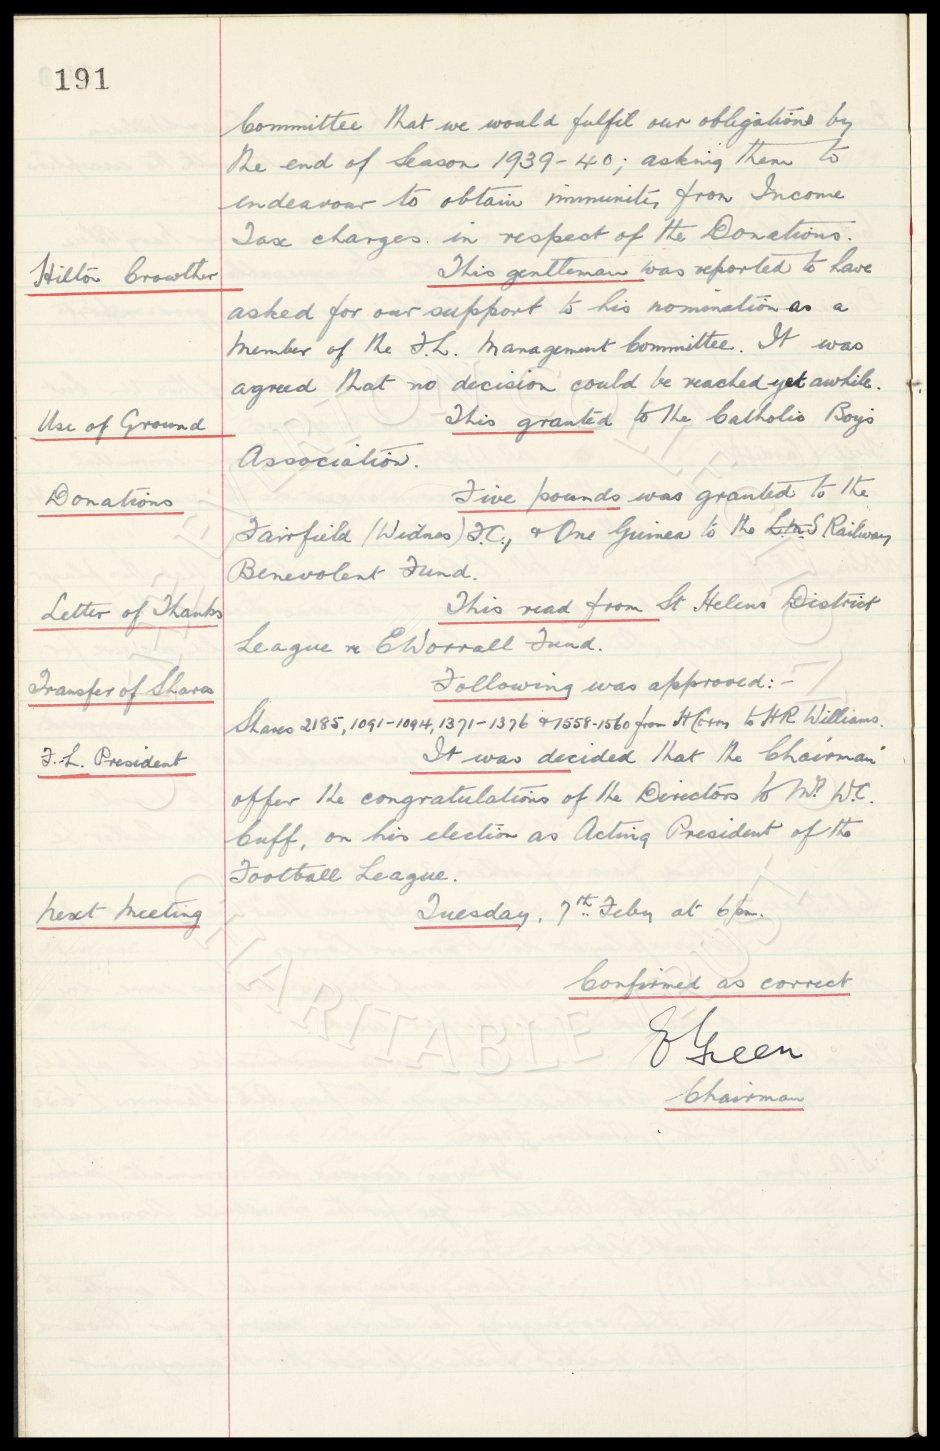 191
Committee that we would fulfil our obligations by
the end of Season 1939-40; asking them to
endeavour to obtain immunity from Income
Tax charges in respect of the Donations.
Hilton Crowther This gentleman was reported to have
asked for our support to his nomination as a
Member of the F.L. Management Committee. It was
agreed that no decision could be reached yet awhile.
Use of Ground This granted to the Catholic Boys
Association.
Donations Five pounds was granted to the
Fairfield (Widnes) F.C., & One Guinea to the L.M.S Railway
Benevolent Fund.
Letter of Thanks This read from St Helens District
League re E Worrall Fund.
Transfer of Shares Following was approved:-
Shares 2185, 1091-1094, 1371-1376 & 1558-1560 from H Corry to H R Williams.
F.L. President It was decided that the Chairman
offer the congratulations of the Directors to Mr W.C.
Cuff, on his election as Acting President of the
Football League.
Next Meeting Tuesday, 7th Feby at 6pm.
Confirmed as correct
E Green
Chairman
EVERTON COLLECTION
CHARITABLE TRUST